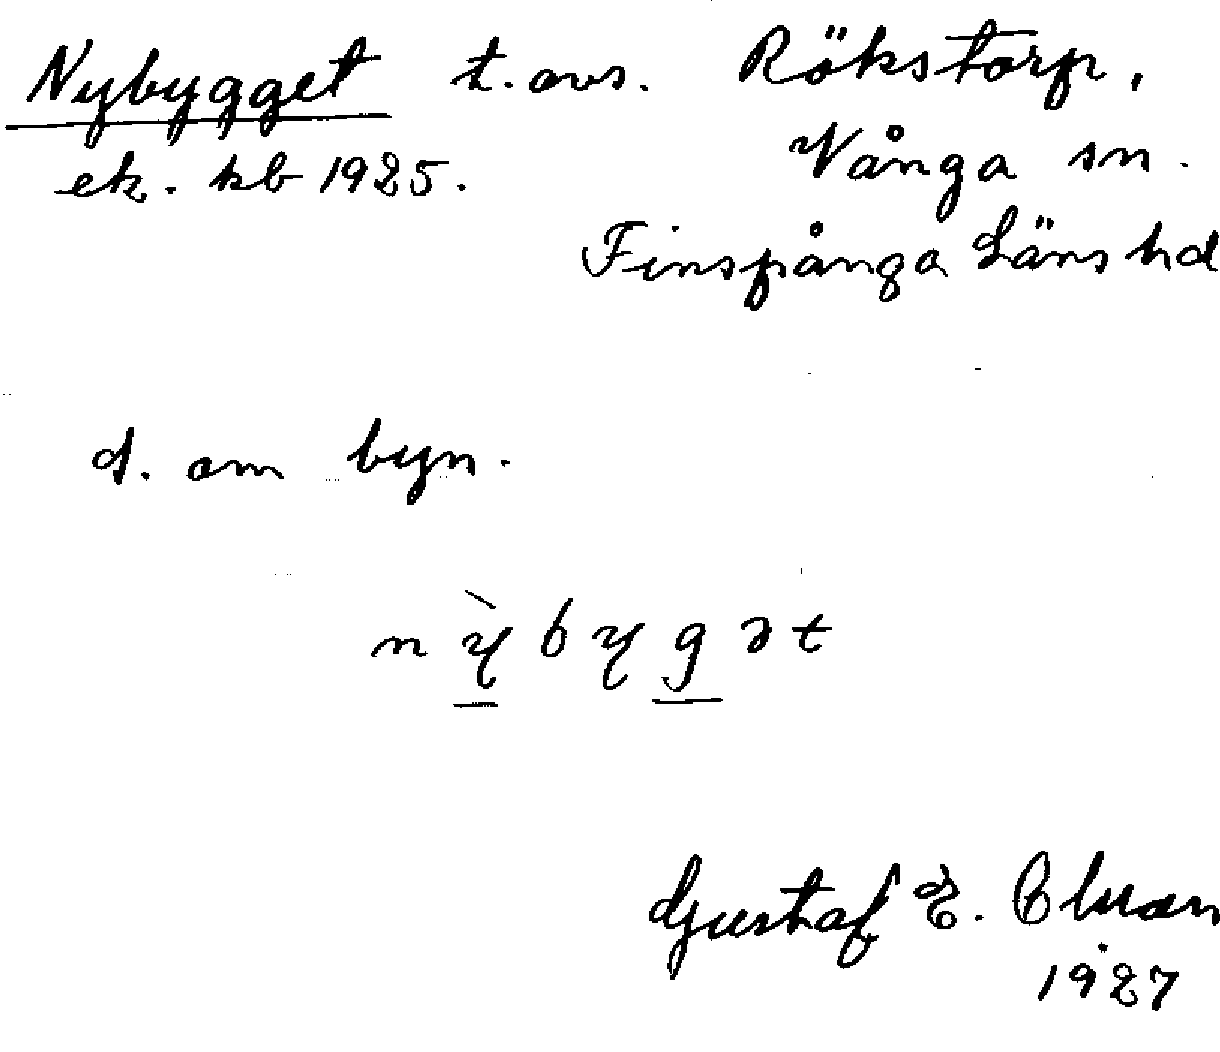 Nybygget t. avs. Rökstorp,
Vånga sn.
ek. kb 1925.
Finspånga Läns hd
d. om byn.
nỳbygət
Gustaf E.
1927